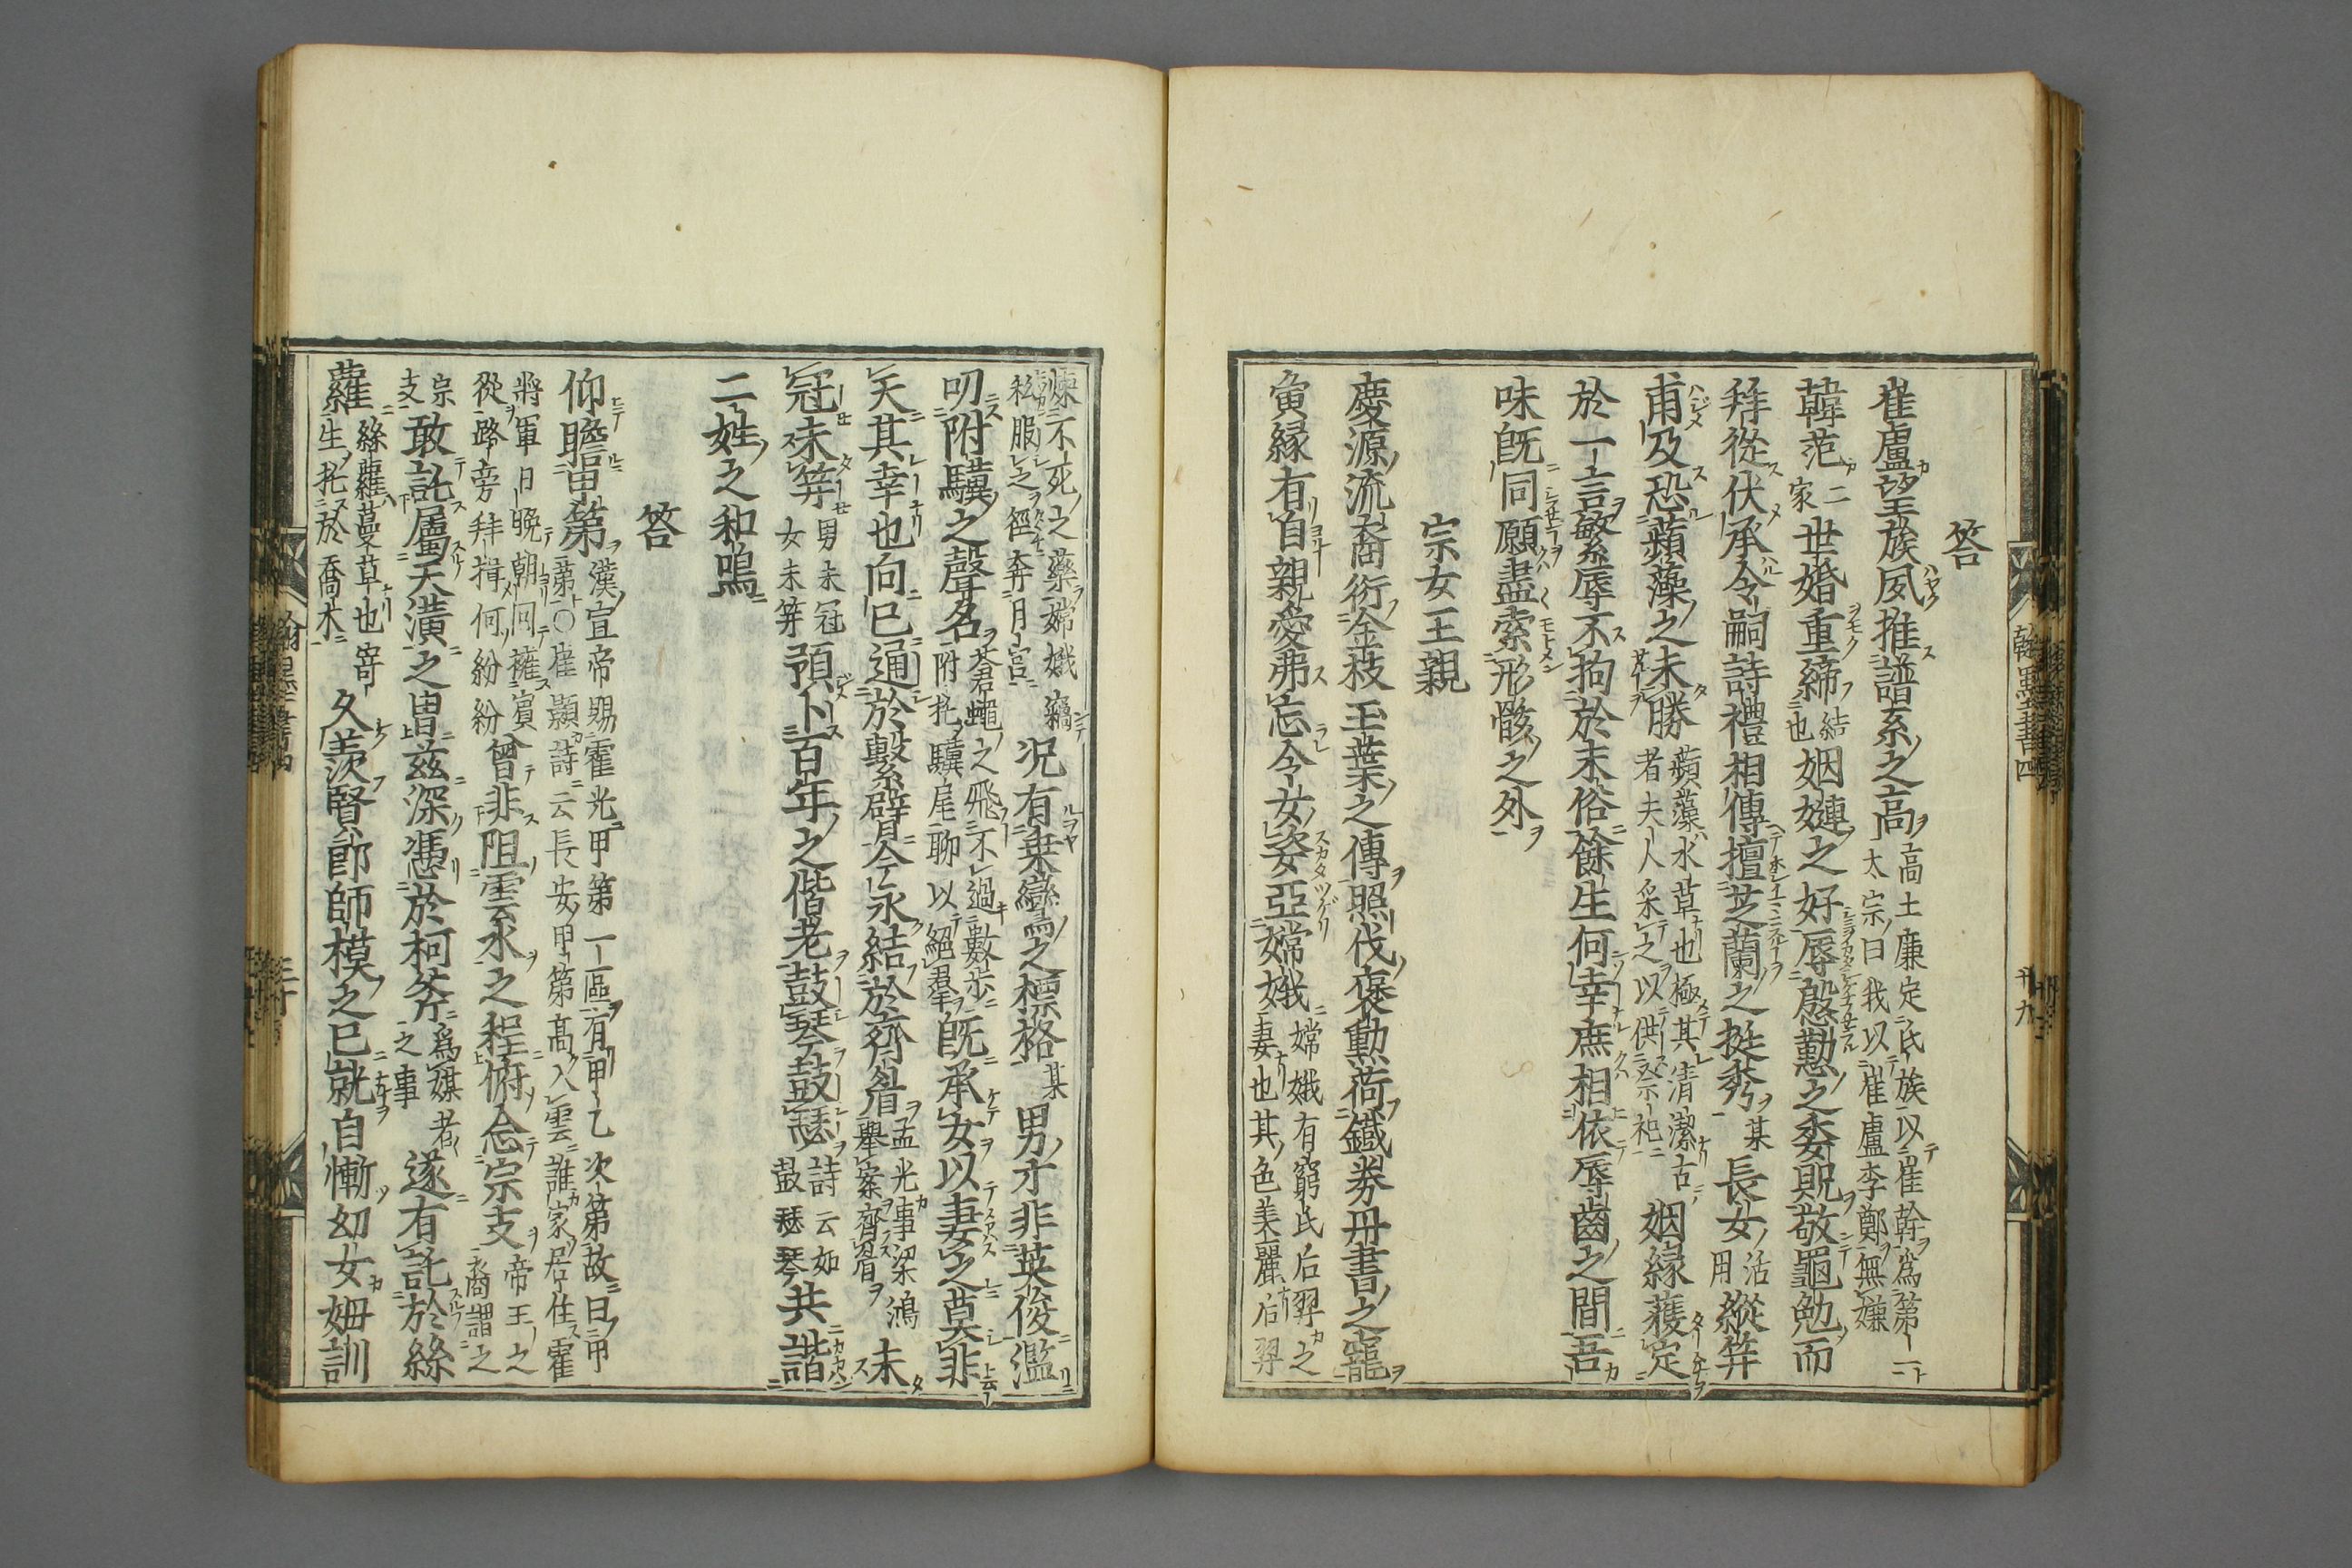 答
崔盧望族夙推譜系之高高士廉定氏族以崔幹爲第一太宗曰我以崔盧李鄭無嫌
韓范二家世婚重締結也姻嫌之好辱慇懃之委貺敬黽勉而
拜從伏承令嗣詩禮相傳擅芝蘭之挺秀某長女活用縱筓
甫及恐蘋藻之未勝蘋藻水草也極其清潔古者夫人采之以供祭祀姻縁蒦定
於一言繁辱不拘於末俗餘生何幸庶相依辱齒之間吾
味既同願盡索形骸之外
宗女王親
慶源流裔衍金枝玉葉之傳照伐褒勳荷鐵券丹書之寵
寅縁有自親愛弗忘令女姿亞嫦娥嫦娥有窮氏后羿之妻也其色美麗后羿
翰墨全書四
廿九
煉不死之藥嫦娥竊私服之徑奔月宮况有乗鸞之標格某男才非英俊濫
叨附驥之聲名蒼蠅之飛不過數步附托驥尾聊以絕羣既承女以妻之莫非
天其幸也向已通於繫臂今永結於齊眉孟光事梁鴻舉案齊眉未
冠未筓男未冠女未筓預卜百年之偕老鼓琴鼓瑟詩云如鼓瑟琴共諧
二姓之和鳴
答
仰瞻甲第漢宣帝賜霍光甲第一區有甲乙次第故曰甲第○崔顥詩云長安甲第高入雲誰家居住霍
將軍日晚朝回擁賓從路旁拜揖何紛紛曾非阻雲水之程俯念宗支帝王之裔謂之
宗支敢託屬天潢之冑茲深憑於柯斧爲媒者之事遂有託於絲
蘿絲蘿蔓草也寄生托於喬木久羨賢郎師模之已就自慚幼女姆訓
三十